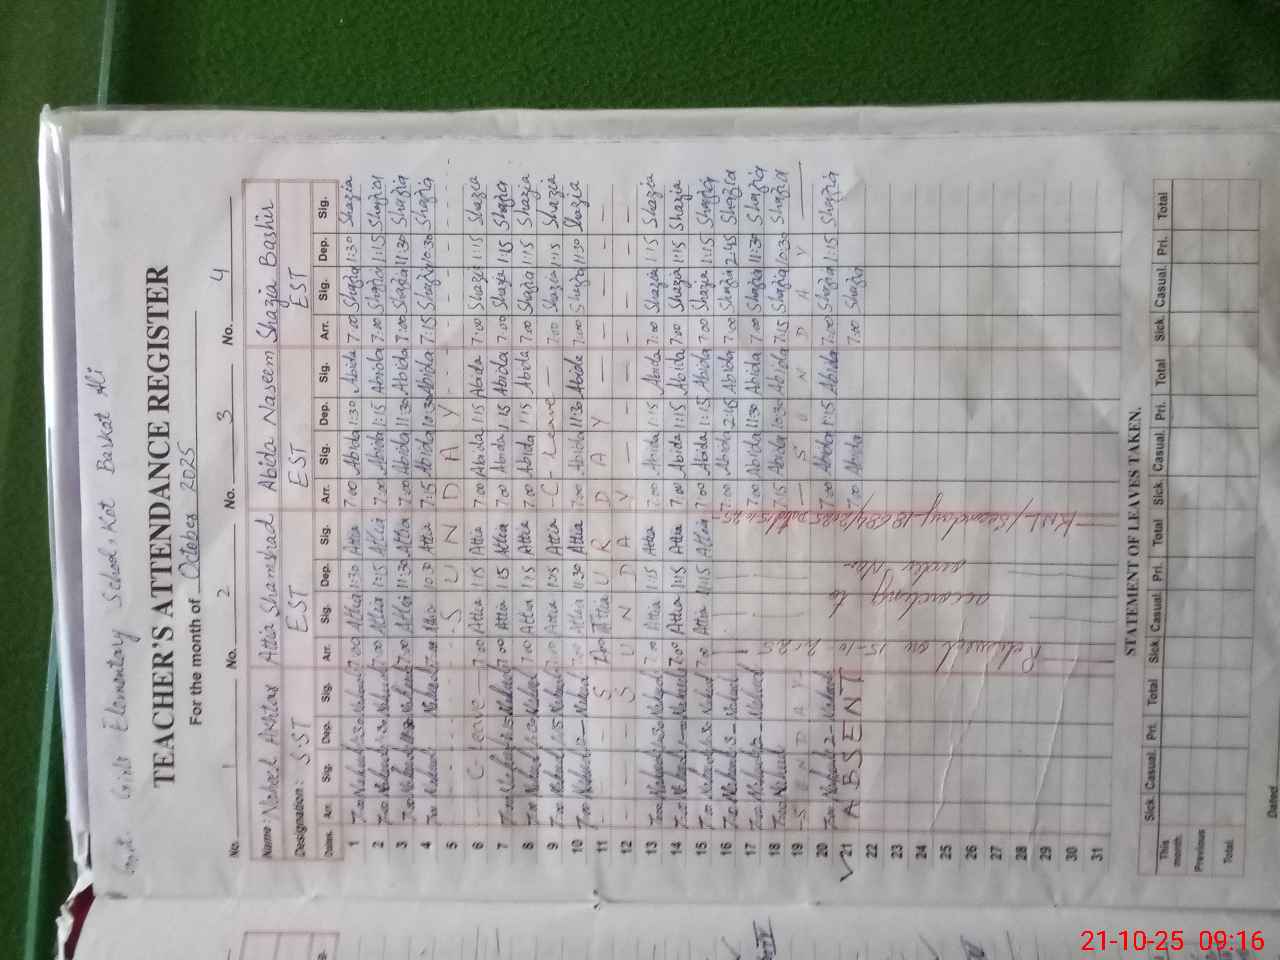 Govt. Girls Elementary School, Kot Barkat Ali
TEACHER'S ATTENDANCE REGISTER
For the month of October 2025
No. 1 No. 2 No. 3 No. 4
Name: Naheed Akhtar Attia Shamshad Abida Naseem Shazia Bashir
Designation: S.S.T EST EST EST
Dates. Arr. Sig. Dep. Sig. Arr. Sig. Dep. Sig. Arr. Sig. Dep. Sig. Arr. Sig. Dep. Sig.
1 7:00 Naheed 1:30 Naheed 7:00 Attia 1:30 Attia 7:00 Abida 1:30 Abida 7:00 Shazia 1:30 Shazia
2 7:00 Naheed 1:30 Naheed 7:00 Attia 1:15 Attia 7:00 Abida 1:15 Abida 7:00 Shazia 1:15 Shazia
3 7:00 Naheed Naheed 7:00 Attia 11:30 Attia 7:00 Abida 11:30 Abida 7:00 Shazia 11:30 Shazia
4 7:00 Naheed Naheed Attia 10:30 Attia 7:15 Abida 10:30 Abida 7:15 Shazia 10:30 Shazia
5 S U N D A Y
6 C - Leave 7:00 Attia 1:15 Attia 7:00 Abida 1:15 Abida 7:00 Shazia 1:15 Shazia
7 7:00 Naheed Naheed 7:00 Attia 1:15 Attia 7:00 Abida 1:15 Abida 7:00 Shazia 1:15 Shazia
8 7:00 Naheed Naheed 7:00 Attia 1:15 Attia 7:00 Abida 1:15 Abida 7:00 Shazia 1:15 Shazia
9 7:00 Naheed Naheed 7:00 Attia Attia C - Leave 7:00 Shazia 1:15 Shazia
10 7:00 Naheed Naheed 7:00 Attia 11:30 Attia 7:00 Abida 11:30 Abida 7:00 Shazia 11:30 Shazia
11 S Attia U R D A Y
12 S U N D A Y
13 7:00 Naheed Naheed 7:00 Attia 1:15 Attia 7:00 Abida 1:15 Abida 7:00 Shazia 1:15 Shazia
14 7:00 Naheed Naheed 7:00 Attia 1:15 Attia 7:00 Abida 1:15 Abida 7:00 Shazia 1:15 Shazia
15 7:00 Naheed Naheed 7:00 Attia 1:15 Attia 7:00 Abida 1:15 Abida 7:00 Shazia 1:15 Shazia
16 7:00 Naheed Naheed 7:00 Abida 2:45 Abida 7:00 Shazia 2:45 Shazia
17 7:00 Naheed Naheed 7:00 Abida 11:30 Abida 7:00 Shazia 11:30 Shazia
18 7:00 Naheed 7:15 Abida 10:30 Abida 7:15 Shazia 10:30 Shazia
19 S U N D A Y S U N D A Y
20 7:00 Naheed 2 Naheed 7:00 Abida 1:15 Abida 7:00 Shazia 1:15 Shazia
21 ABSENT 7:00 Abida 7:00 Shazia
22
23
24
25
26
27
28
29
30
31
Relieved on 15-10-2025
according to
order No.
STATEMENT OF LEAVES TAKEN.
Sick. Casual. Pri. Total Sick. Casual. Pri. Total Sick. Casual. Pri. Total Sick. Casual. Pri. Total
This month
Previous
Total
Dated
21-10-25 09:16